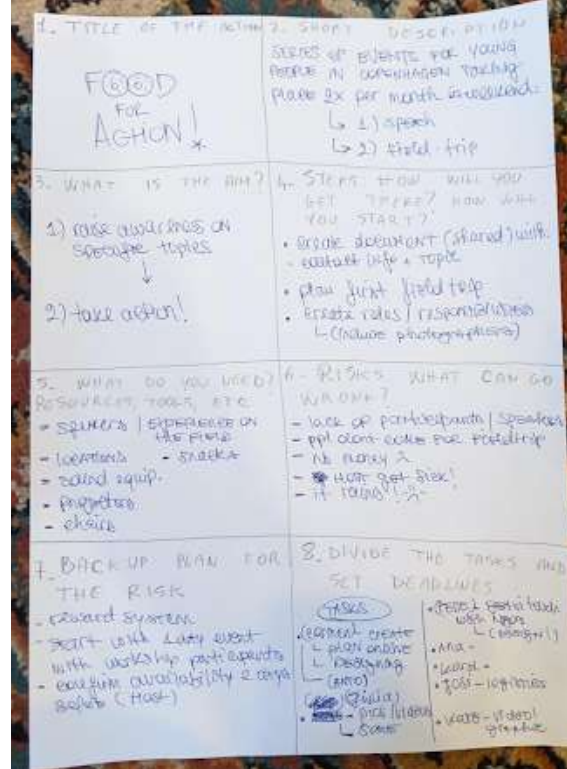 1. TITLE OF THE ACTION
FOOD
FOR
ACTION!
2. SHORT DESCRIPTION
SERIES OF EVENTS FOR YOUNG
PEOPLE IN COPENHAGEN TAKING
PLACE 2x per month
↳ 1) speech
↳ 2) field-trip
3. WHAT IS THE AIM?
1) raise awareness on
specific topics
↓
2) take action!
4. STEPS HOW WILL YOU
GET THERE? HOW WILL
YOU START?
• create document (shared) with
- contact info + topic
• plan first field trip
• create roles / responsibilities
↳ (include photographers)
5. WHAT DO YOU NEED?
RESOURCES, TOOLS, ETC
- / EXPERIENCE ON
THE FIELD
- locations - snacks
- sound equip.
- projectors
- chairs
6. RISKS WHAT CAN GO
WRONG?
- lack of participants / speakers
- ppl dont come FOR
- no money
- HOST got sick!
- it rains!
7. BACKUP PLAN FOR
THE RISK
- reward system
- start with event
with workshop participants
- availability 2 days
before (Host)
8. DIVIDE THE TASKS AND
SET DEADLINES
TASKS
create
↳ plan
↳ Designing
(Giulia)
- pics/videos
with
• Ana -
- logistics
- video/